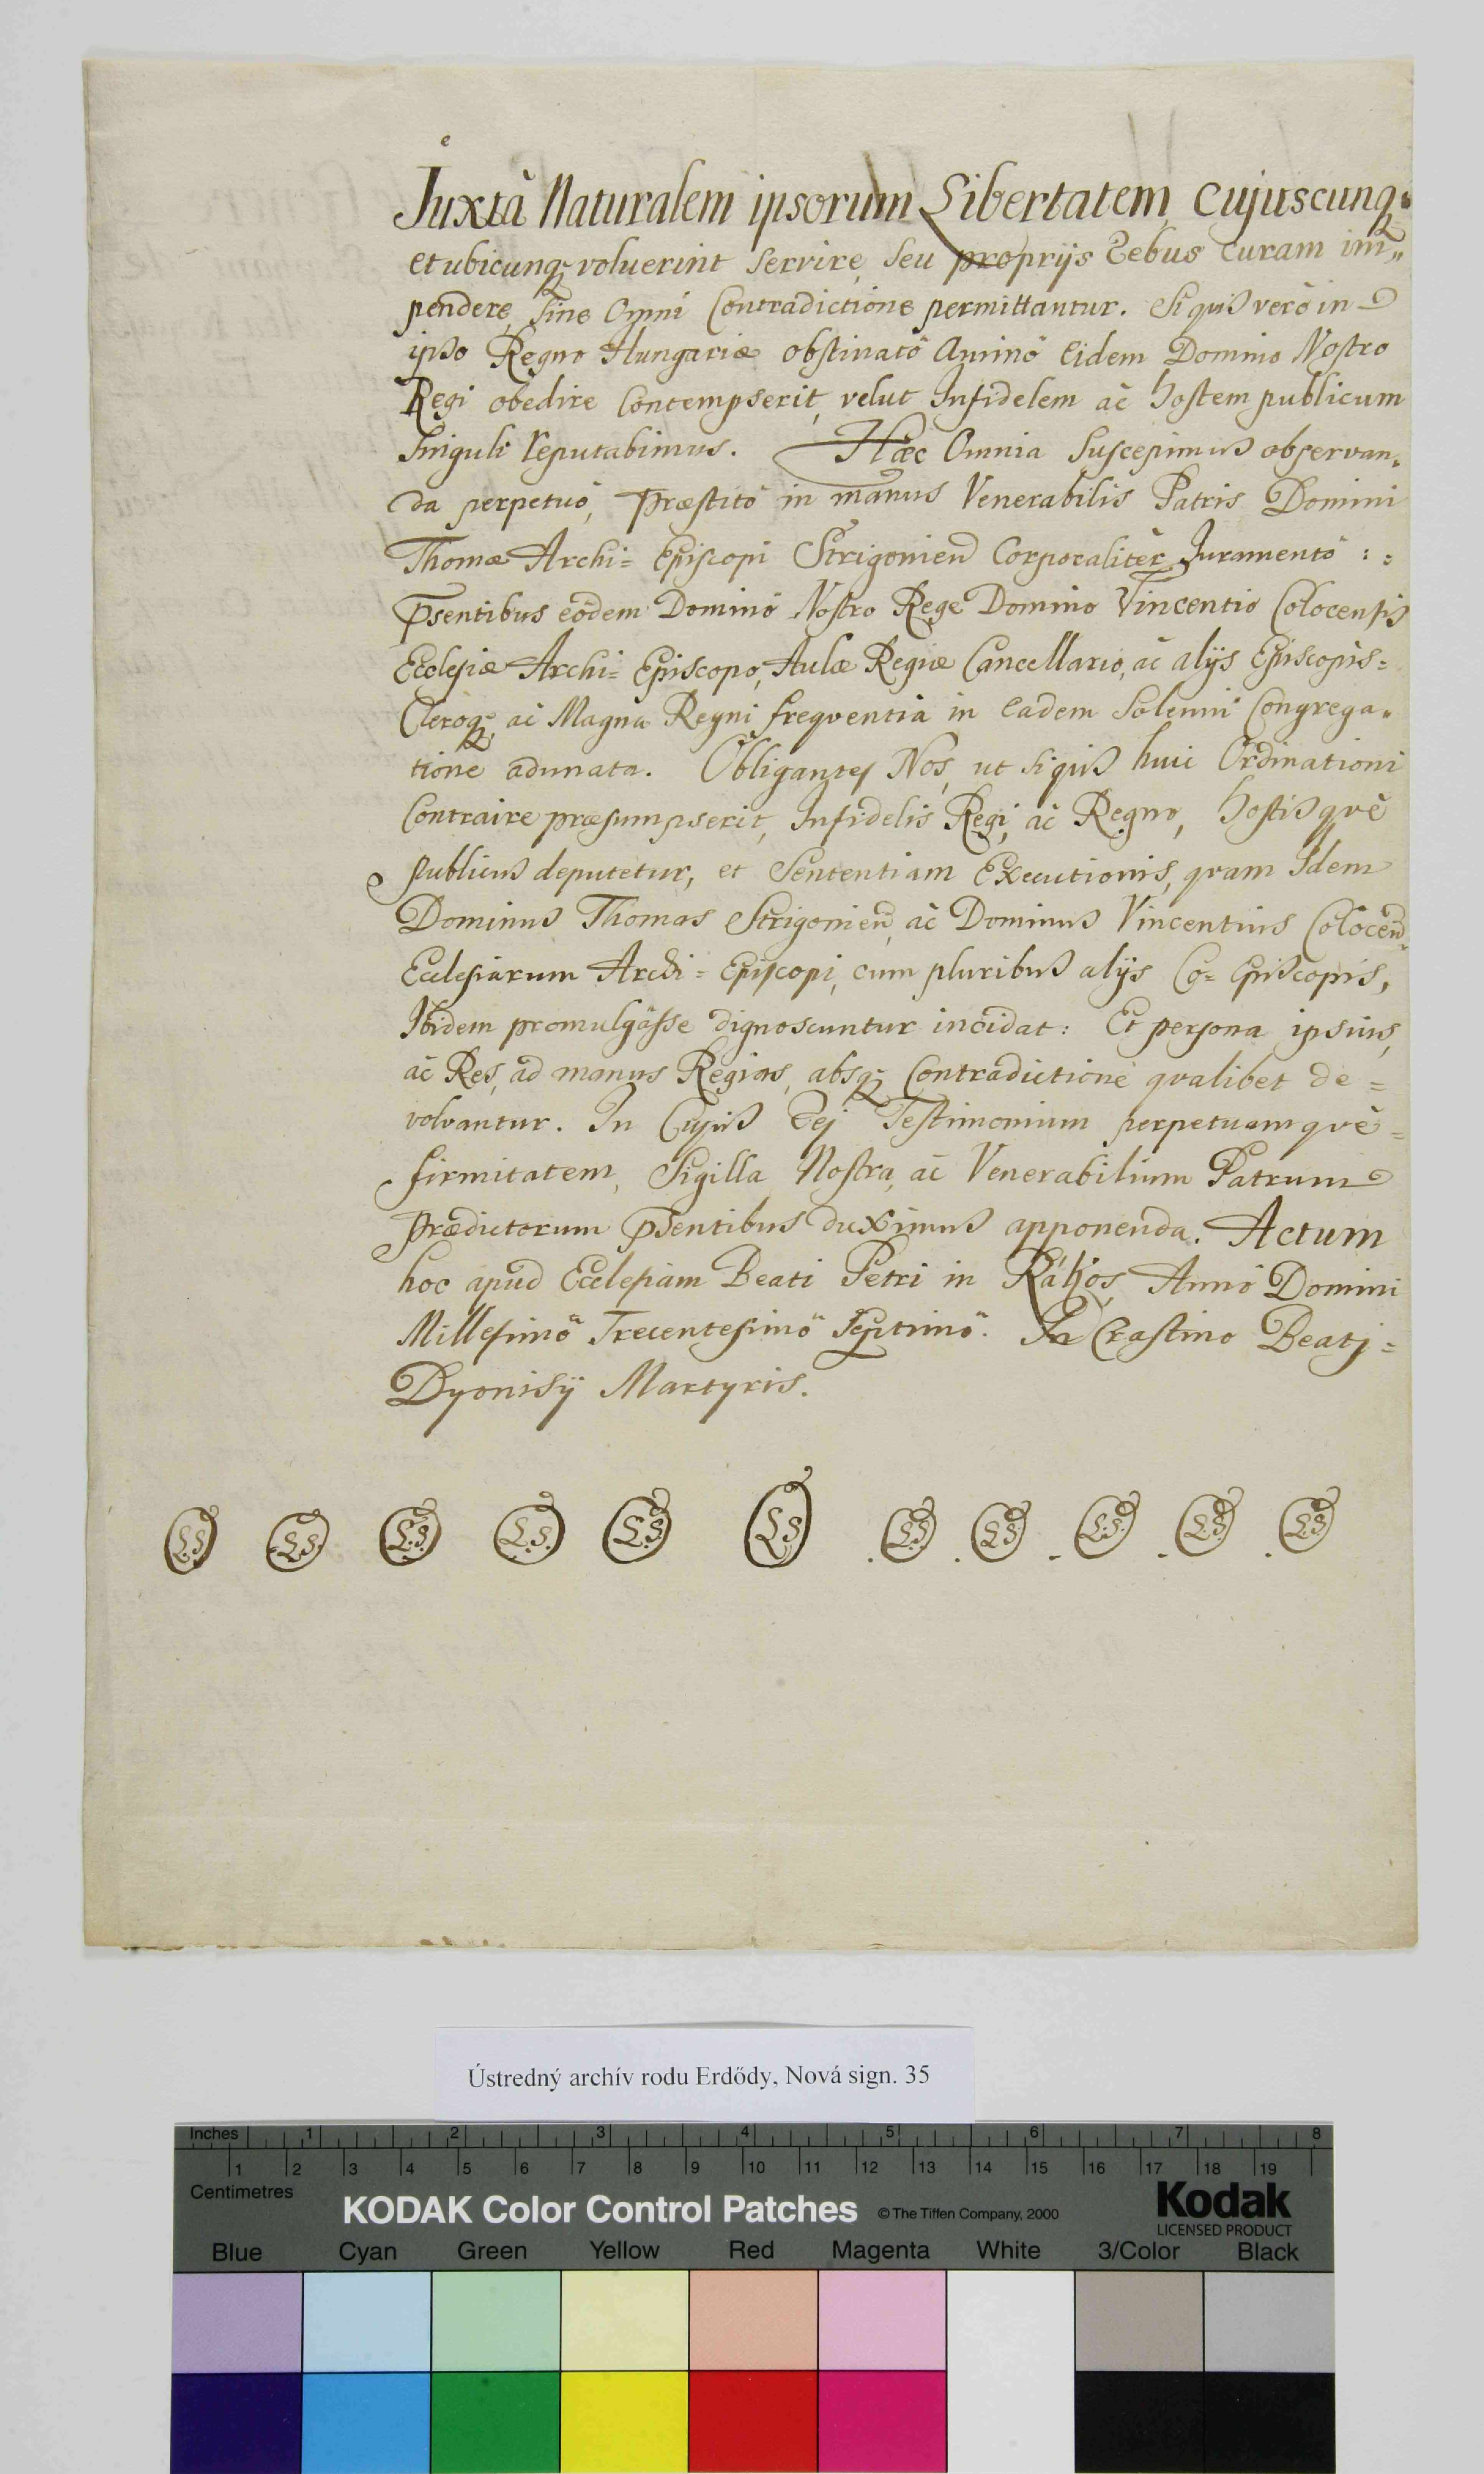 Juxtà Naturalem ipsorum Libertatem, cujuscunq;
et ubicunq; voluerint servire, seu proprijs rebus curam im„
pendere, sine Omni Contradictione permittantur. Si quis verò in
ipso Regno Hungariæ obstinatô Animô Eidem Domino Nostro
Regi obedire Contempserit, velut Infidelem ac hostem publicum
Singuli reputabimus. Hæc Omnia Suscepimus observan„
da perpetuò, Præstitô in manus Venerabilis Patris Domini
Thomæ Archi= Episcopi Strigonien Corporalitèr Juramentô :
Psentibus eôdem Dominô Nostro Rege Domino Vincentio Colocensis
Ecclesiæ Archi= Episcopo, Aulæ Regiæ Cancellario, ac alijs Episcopis=
Cleroq; ac Magna Regni frequentia in Eadem Solenni Congrega„
tione adunata. Obligantes Nos, ut si quis huic Ordinationi
Contraire præsumpserit, Infidelis Regi, ac Regno, hostisquè
publicus deputetur, et Sententiam Executionis, qvam Idem
Dominus Thomas Strigonien, ac Dominus Vincentius Colocen
Ecclesiarum Archi= Episcopi, cum pluribus alijs Co= Episcopis,
Ibidem promulgâsse dignoscuntur incidat: Et persona ipsius,
ac Res, ad manus Regias, absq; Contradictione qvalibet de=
volvantur. In Cujus rej Testimonium perpetuamqvè=
firmitatem, Sigilla Nostra, ac Venerabilium Patrum
prædictorum Psentibus duximus apponenda. Actum
hoc apud Ecclesiam Beati Petri in Rákos, Annô Domini
Millesimô Trecentesimô Septimô. In Crastino Beatj=
Dyonisÿ Martyris.
L.S. L.S. L.S. L.S. L.S. L.S. L.S. L.S. L.S. L.S. L.S.
Ústredný archív rodu Erdődy, Nová sign. 35
Inches 1 2 3 4 5 6 7 8
1 2 3 4 5 6 7 8 9 10 11 12 13 14 15 16 17 18 19
Centimetres
KODAK Color Control Patches © The Tiffen Company, 2000 Kodak
LICENSED PRODUCT
Blue Cyan Green Yellow Red Magenta White 3/Color Black